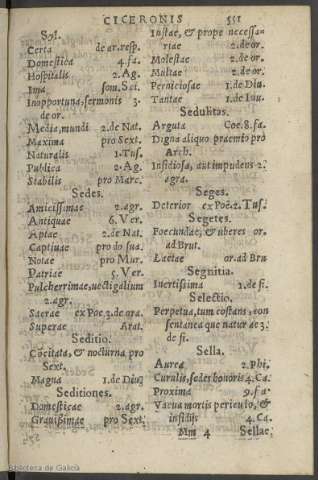 CICERONIS 551
Syl.
Certa de ar.resp.
Domestica 4.fa.
Hospitalis 2.Ag.
Ima som.Sci.
Inopportuna, sermonis 3.
de or.
Media, mundi 2.de Nat.
Maxima pro Sext.
Naturalis 1.Tuf.
Publica 2.Ag.
Stabilis pro Marc.
Sedes.
Amicissimae 2.agr.
Antiquae 6.Ver.
Aptae 2.de Nat.
Captiuae pro do sua.
Notae pro Mur.
Patriae 5.Ver.
Pulcherrimae, uectigalium
2.agr.
Sacrae ex Poë.2.de ora.
Superae Arat.
Seditio.
Cōcitata, & nocturna pro
Sext.
Magna 1.de Diu.
Seditiones.
Domesticae 2.agr.
Grauissimae pro Sext.
Instae, & prope necessa-
riae 2.de or.
Molestae 2.de or.
Multae 2.de or.
Perniciosae 1.de Diu.
Tantae 1.de Inu.
Sedulitas.
Arguta Coe.8.fa.
Digna aliquo praemio pro
Arch.
Insidiosa, aut impudens 2.
agra.
Seges.
Deterior ex Poë.2.Tus.
Segetes.
Foecundae, & uberes or.
ad Brut.
Laetae or.ad Bru
Segnitia.
Inertissima 1.de fi.
Selectio.
Perpetua, tum constans, con
sentanea que naturae 3.
de fi.
Sella.
Aurea 2.Phi.
Curulis, sedes honoris 4.Ca.
Proxima 9.fa.
Vacua mortis periculo, &
insidiis 4.Ca.
Mm 4 Sellae.
Biblioteca de Galicia